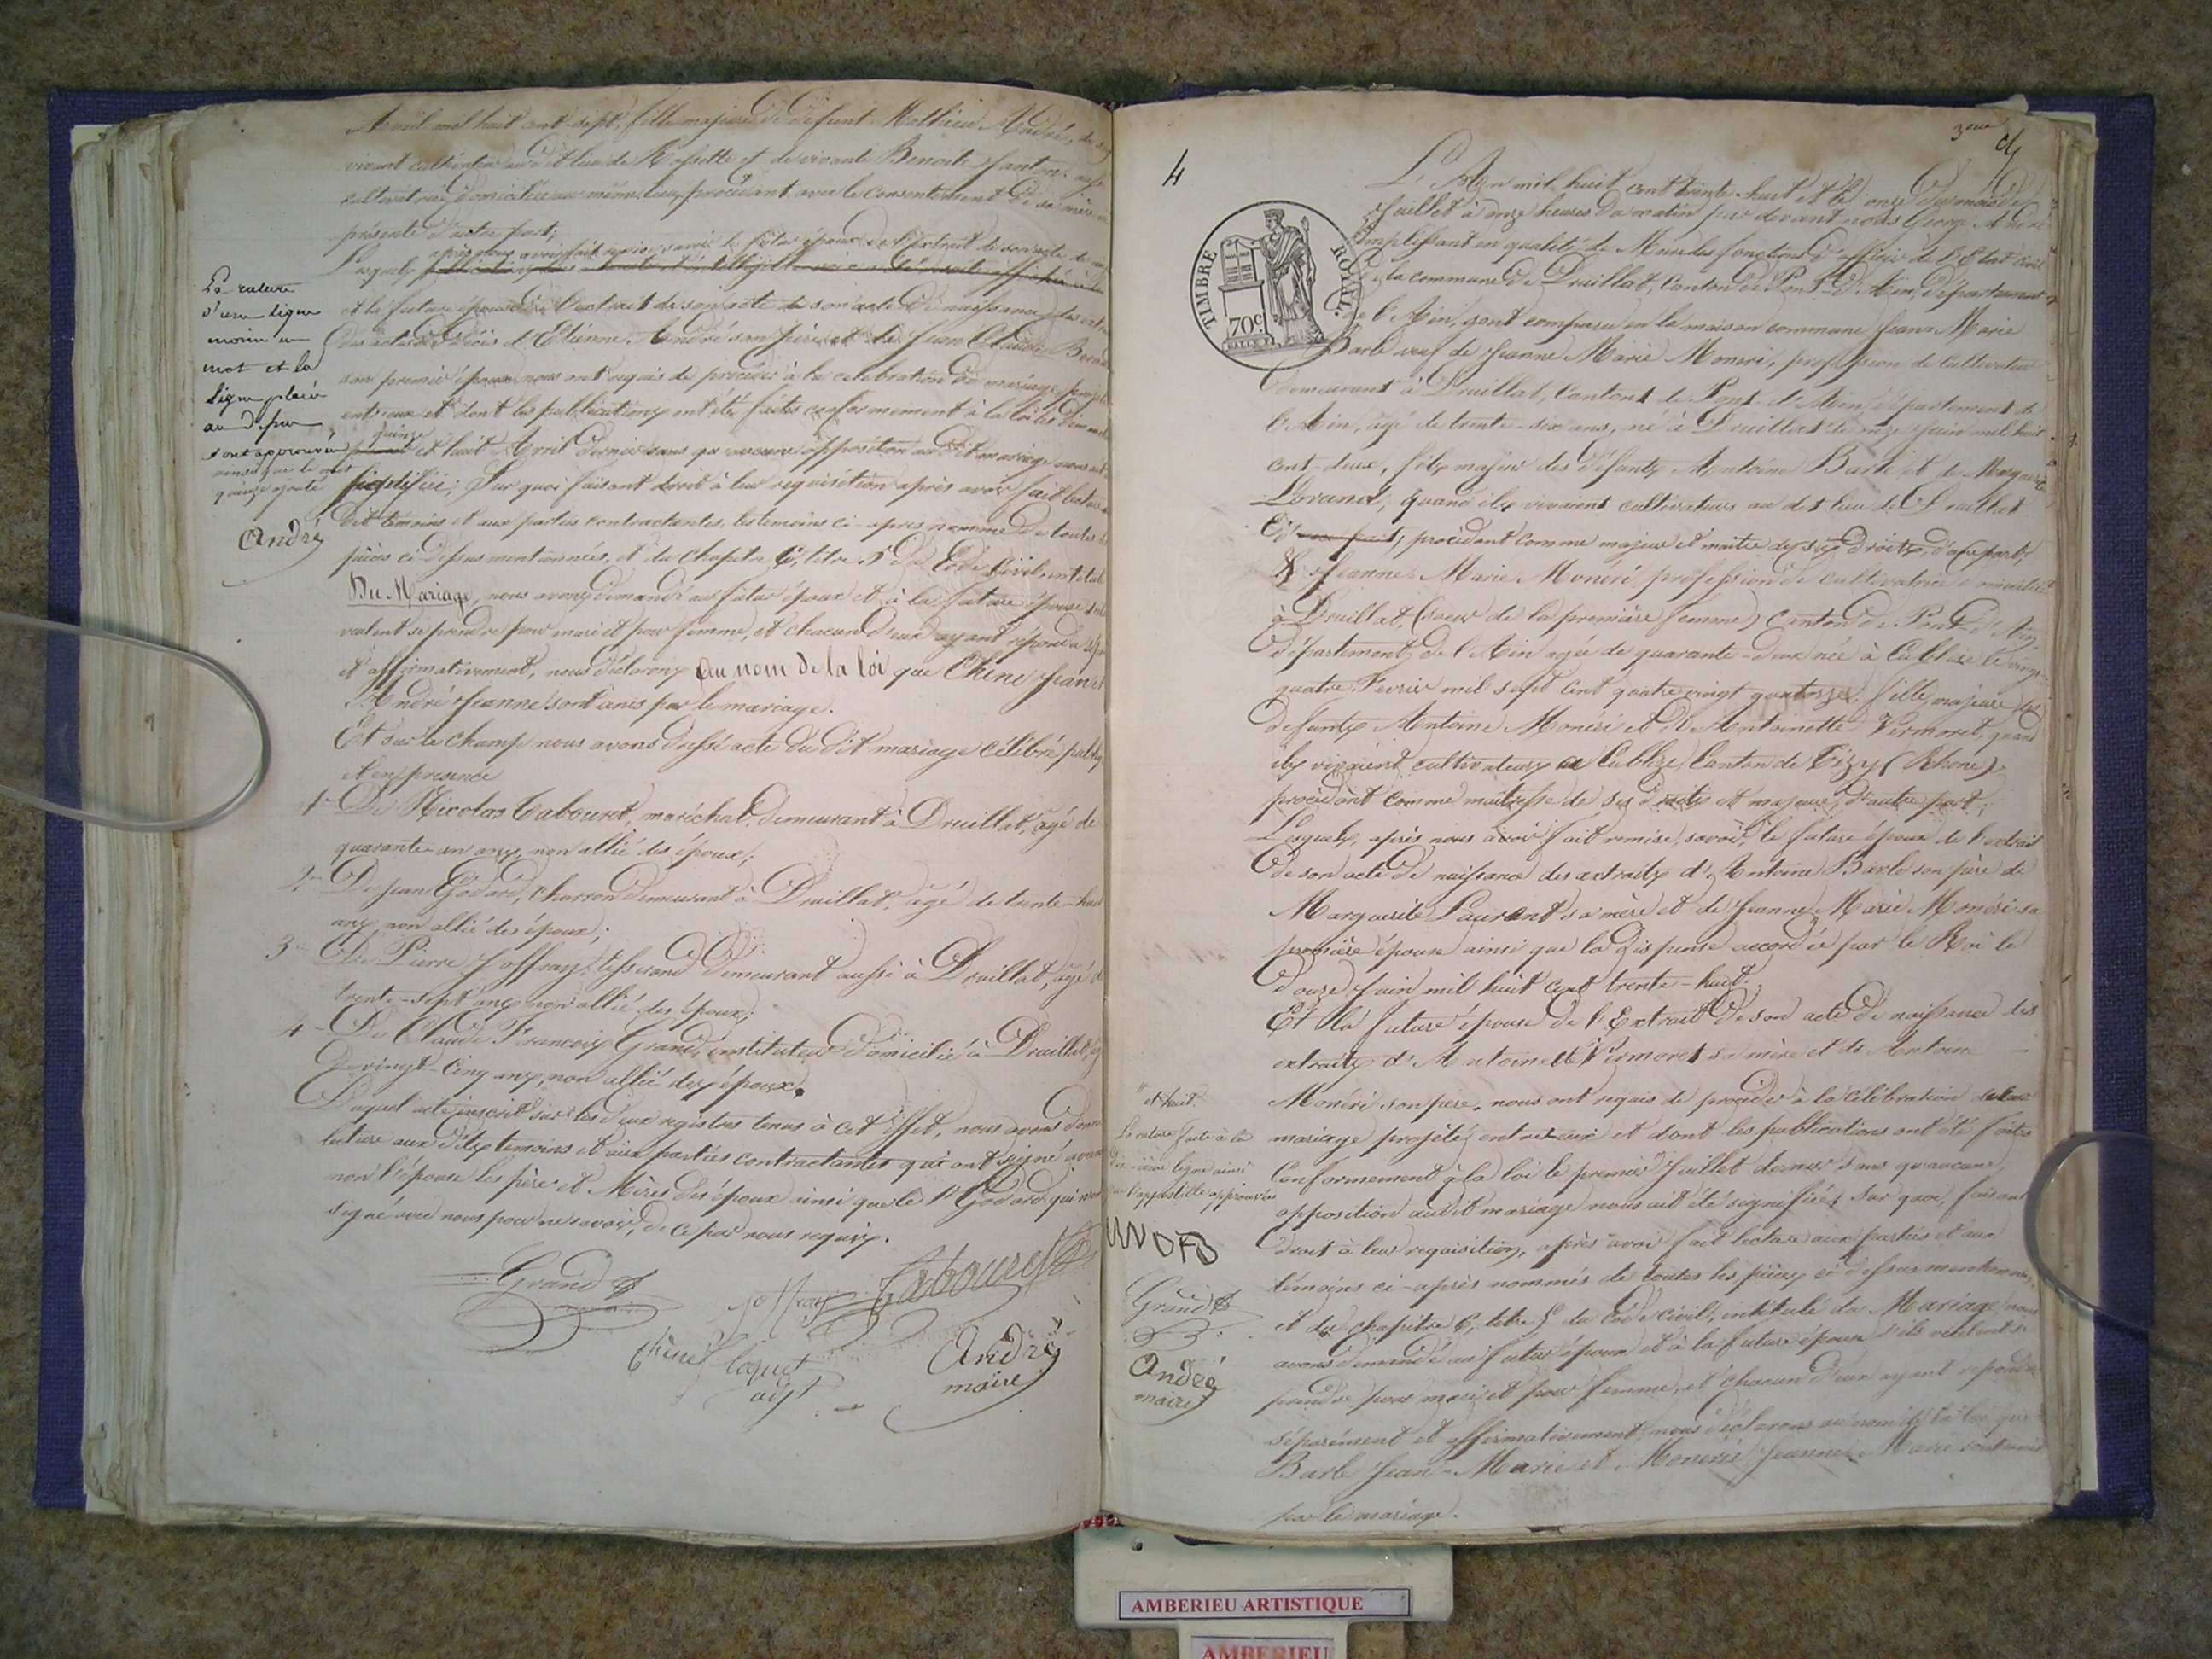 Avril mil huit cent sept, fille majeure de défunt Mathieu André, de son
vivant cultivateur au dit lieu de Rossette et de vivante Benoite Janton
cultivatrice domiciliée au même lieu, procédant avec le consentement de sa mère
présente d'autre part;
après nous avoir fait remise, savoir le futur époux de l'extrait de son acte de
Lesquels
et la future épouse de l'extrait de son acte de son acte de naissance, des
des actes de décès d'Etienne André son père et de Jean Claude
son premier époux nous ont requis de procéder à la célébration du mariage projeté
entr'eux et dont les publications ont été faites conformément à la loi les dimanches
quinze
et huit Avril dernier sans qu'aucune opposition au dit mariage nous ait
signifiée; Sur quoi faisant droit à leur requisition après avoir fait lecture
dit témoins et aux parties contractantes, les temoins ci-après nommé de toutes les
pièces ci-dessus mentionnées, et du chapitre 6, titre 5 du Code Civil, intitulé
Du Mariage, nous avons demandé au futur époux et à la future épouse s'ils
veulent se prendre pour mari et pour femme, et chacun d'eux ayant répondu
et affirmativement, nous déclarons au nom de la loi que Chêne Jean et
André Jeanne sont unis par le mariage.
Et sur le champ nous avons dressé acte du dit mariage célébré
et en présence
1° De Nicolas Tabouret, maréchal, demeurant à Druillat, agé de
quarante-un ans, non allié des époux;
2° De Jean Godard, charron demeurant à Druillat, agé de trente-huit
ans, non allié des époux;
3° De Pierre Joffray, tisserand demeurant aussi à Druillat, agé de
trente-sept ans non allié des époux;
4° De Claude François Grand, instituteur domicilié à Druillat,
de vingt-cinq ans, non allié des époux.
Duquel acte inscrit sur les deux registres tenus à cet effet, nous avons donné
lecture aux dits temoins et aux parties contractantes qui ont signé avec
non l'épouse les père et Mères des époux ainsi que le Sr Godard qui n'ont
signé avec nous pour ne savoir, de ce par nous requis.
Grand
Joffray
Tabouret
Chêne
Loquet
adjt
André
maire
La rature
d'une ligne
moins un
mot et la
ligne placée
au dessus
sont approuvées
ainsi que le mot
quinze ajouté
André
3eme
4
TIMBRE ROYAL
70c
L'An mil huit cent trente-huit et le onze du mois de
Juillet à onze heures du matin par devant nous George André
remplissant en qualité de Maire les fonctions d'officier de l'Etat civil
de la commune de Druillat, Canton de Pont-d'Ain, département
de l'Ain, sont comparu en la maison commune Jean-Marie
Barle veuf de Jeanne Marie Moneri, profession de cultivateur
demeurant à Druillat, Canton de Pont-d'Ain, département de
l'Ain, agé de trente-six ans, né à Druillat le juin mil huit
cent-deux, fils majeur des défunts Antoine Barle et de Marguerite
Lorand, quand ils vivaient cultivateurs au dit lieu de Druillat
procédant comme majeur et maître de ses droits, d'une part;
Et Jeanne-Marie Monéri profession de cultivatrice domiciliée
à Druillat, (soeur de la première femme) Canton de Pont-d'Ain
département de l'Ain agée de quarante-deux née à Cublize le vingt
quatre Fevrier mil sept cent quatre vingt quatorze. fille majeure des
defunts Antoine Monéri et de Antoinette Vermoret, quand
ils vivaient cultivateurs à Cublize, Canton de Tizy (Rhone)
procédant comme maîtresse de ses droits et majeure, d'autre part;
Lesquels, après nous avoir fait remise, savoir, le future époux de l'extrait
de son acte de naissance des extraits d'Antoine Barle son père de
Marguerite Laurent sa mère et de Jeanne Marie Monéri sa
première épouse ainsi que la dispense accordée par le Roi le
douze Juin mil huit cent trente-huit.
Et la future épouse de l'Extrait de son acte de naissance des
extraits d'Antoinette Vermoret sa mère et de Antoine
Monéri son père, nous ont requis de procéder à la célébration
mariage projeté entre eux et dont les publications ont été faites
Conformément à la loi le premier Juillet dernier sans qu'aucune
opposition audit mariage nous ait été signifiée, sur quoi, faisant
droit à leur requisition, après avoir fait lecture aux parties et aux
témoins ci-après nommés de toutes les pièces ci dessus mentionnées,
et du chapitre 6, titre 5 du Code civil, intitulé du Mariage, nous
avons demandé au futur époux et à la future épouse s'ils veulent se
prendre pour mari et pour femme, et chacun d'eux ayant repondu
séparément et affirmativement, nous déclarons au nom de la loi que
Barle Jean-Marie et Moneri Jeanne-Marie sont unis
par le mariage.
et huit.
La rature faite à la
ligne ainsi
que l'appostille approuvés
Grand
André
maire
AMBERIEU ARTISTIQUE
AMBERIEU